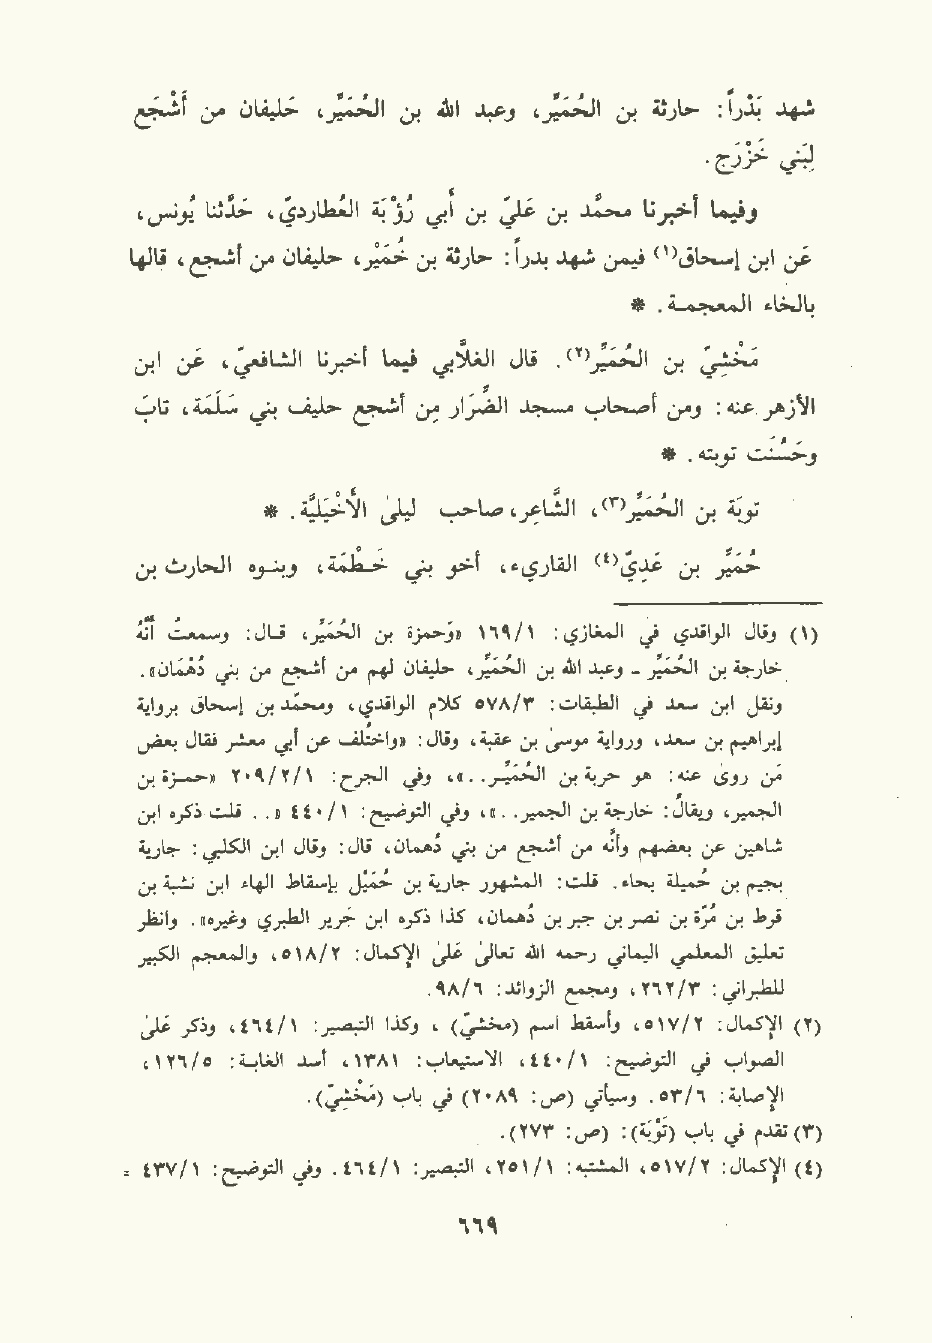 شهد بَدْراً: حارثة بن الحُمَيِّر، وعبد الله بن الحُمَيِّر، حَليفان من أَشْجَع
لِبَني خَزْرَج.
وفيما أخبرنا محمَّد بن عَليّ بن أبي رُؤْبَة العُطارديّ، حَدَّثنا يُونس،
عَن ابن إسحاق(١) فيمن شهد بدراً: حارثة بن خُمَيْر، حليفان من أشجع، قالها
بالخاء المعجمة. *
مَخْشِيّ بن الحُمَيِّر(٢). قال الغلَّابي فيما أخبرنا الشافعيّ، عَن ابن
الأزهر عنه: ومن أصحاب مسجد الضِّرَار مِن أشجع حليف بني سَلَمَة، تابَ
وحَسُنَت توبته. *
توبَة بن الحُمَيِّر(٣)، الشَّاعِر، صاحب ليلىٰ الأَخْيَليَّة. *
حُمَيِّر بن عَدِيّ(٤) القاريء، أخو بني خَطْمَة، وبنوه الحارث بن
(١) وقال الواقدي في المغازي: ١٦٩/١ «وَحمزة بن الحُمَيِّر، قال: وسمعتُ أَنَّهُ
خارجة بن الحُمَيِّر - وعبد الله بن الحُمَيِّر، حليفان لهم من أشجع من بني دُهْمَان».
ونقل ابن سعد في الطبقات: ٥٧٨/٣ كلام الواقدي، ومحمَّد بن إسحاق برواية
إبراهيم بن سعد، ورواية موسىٰ بن عقبة، وقال: «واختُلف عن أبي معشر فقال بعض
مَن روىٰ عنه: هو حربة بن الحُمَيِّر..»، وفي الجرح: ٢٠٩/٢/١ «حمزة بن
الحمير، ويقالُ: خارجة بن الجمير..»، وفي التوضيح: ٤٤٠/١ «.. قلت ذكره ابن
شاهين عن بعضهم وأنَّه من أشجع من بني دُهمان، قال: وقال ابن الكلبي: جارية
بجيم بن حُميلة بحاء. قلت: المشهور جارية بن حُمَيْل بإسقاط الهاء ابن نشبة بن
قرط بن مُرَّة بن نصر بن جبر بن دُهمان، كذا ذكره ابن جَرير الطبري وغيره». وانظر
تعليق المعلمي اليماني رحمه الله تعالىٰ عَلىٰ الإكمال: ٥١٨/٢، والمعجم الكبير
للطبراني: ٢٦٢/٣، ومجمع الزوائد: ٩٨/٦.
(٢) الإكمال: ٥١٧/٢، وأسقط اسم (مخشيّ) ، وكذا التبصير: ٤٦٤/١، وذكر عَلىٰ
الصواب في التوضيح: ٤٤٠/١، الاستيعاب: ١٣٨١، أسد الغابة: ١٢٦/٥،
الإصابة: ٥٣/٦. وسيأتي (ص: ٢٠٨٩) في باب (مَخْشِيّ).
(٣) تقدم في باب (تَوْبَة): (ص: ٢٧٣).
(٤) الإكمال: ٥١٧/٢، المشتبه: ٢٥١/١، التبصير: ٤٦٤/١. وفي التوضيح: ٤٣٧/١ =
٦٦٩